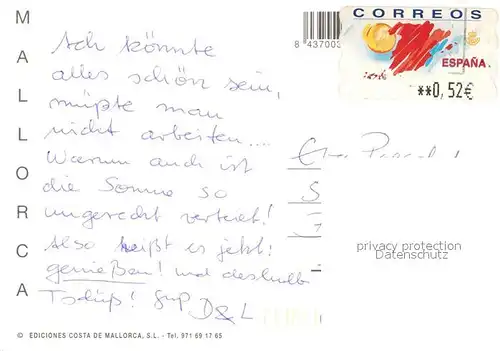 MALLORCA
Ach könnte
alles schön sein,
müßte man
nicht arbeiten....
Warum auch ist
die Sonne so
ungerecht verteilt!
Also heißt es jetzt:
genießen! und deshalb
Tschüß! D&L
© EDICIONES COSTA DE MALLORCA, S.L. - Tel. 971 69 17 65
8 437003
CORREOS
ESPAÑA
**0,52€
privacy protection
Datenschutz